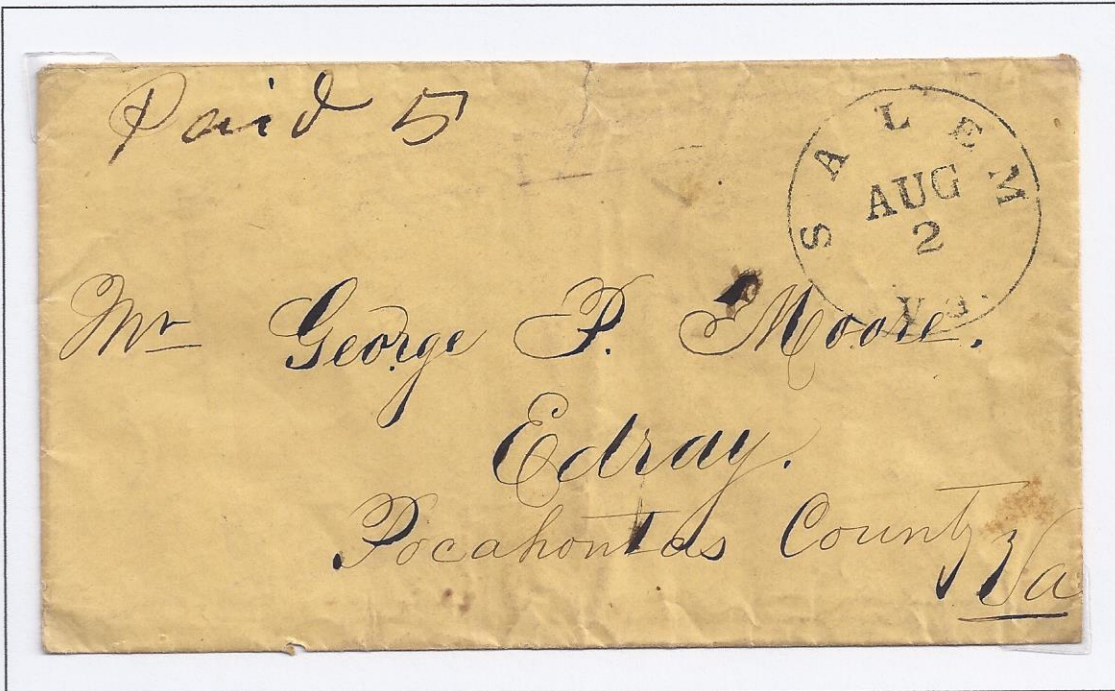 Paid 5
SALEM
AUG
2
Va.
Mr George P. Moore.
Edray.
Pocahontas County
Va